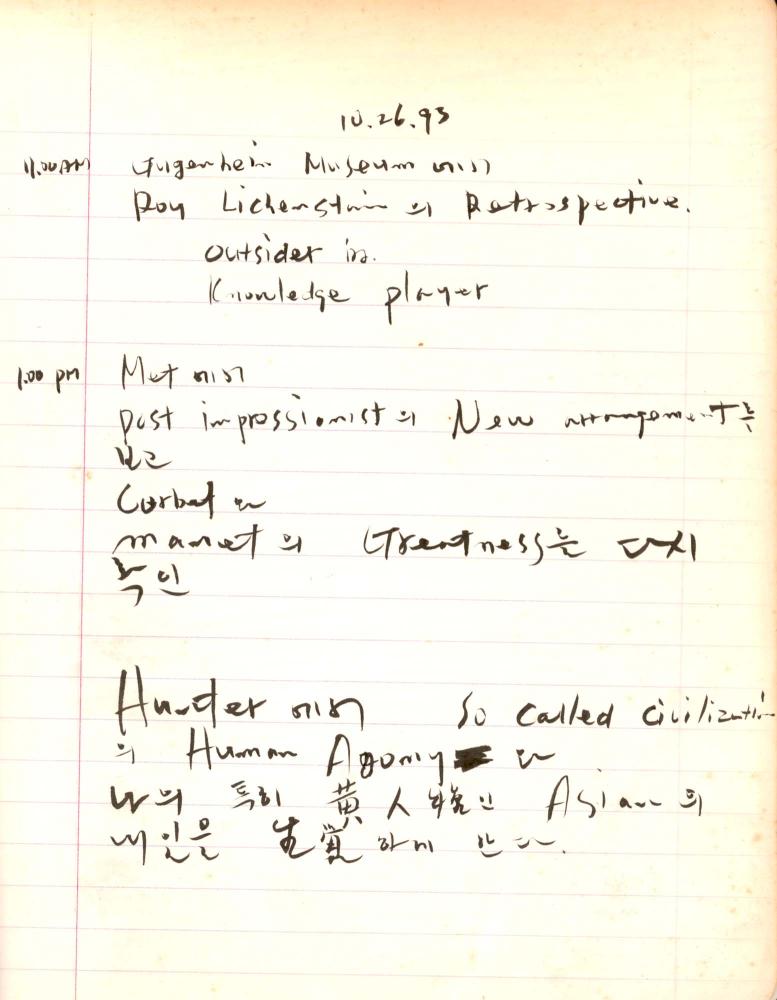 10.26.93
11.00 AM Gugenheim Museum 에서
Roy Lichenstain 의 Retrospective.
outsider in.
Knowledge player
1.00 pm Met 에서
post impressionist 의 New arrangement를
보고
Corbet 와
manet 의 Greatness를 다시
확인
Hunter 에서 So called civilization
의 Human Agony 와
나의 특히 黃人種인 Asian의
내일을 生覺하게 한다.